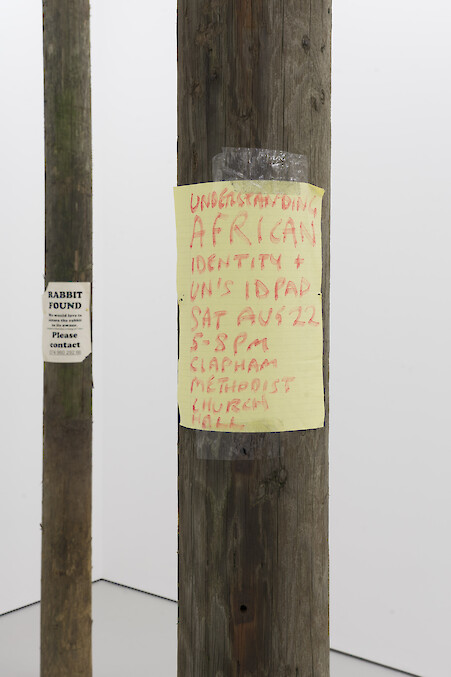 RABBIT
FOUND
We would love to
return the rabbit
to its owner.
Please
contact
UNDERSTANDING
AFRICAN
IDENTITY +
UN'S IDPAD
SAT AUG 22
5-8PM
CLAPHAM
METHODIST
CHURCH
HALL